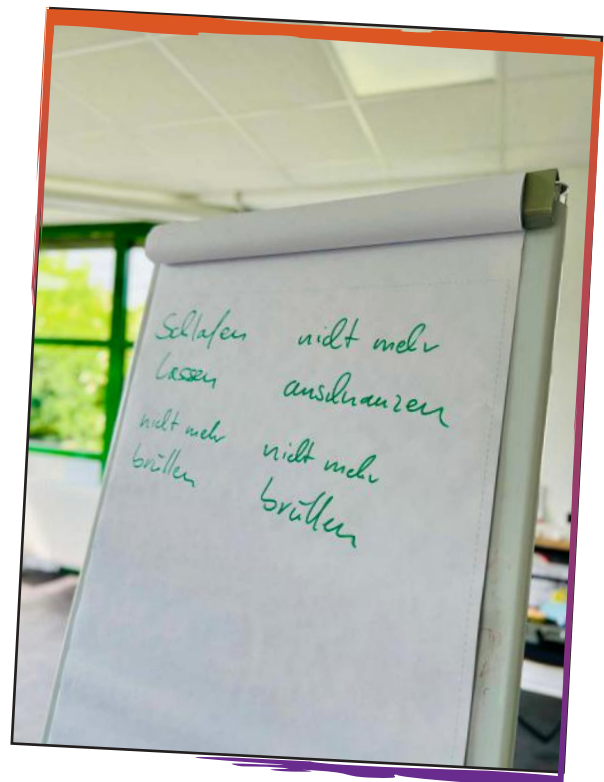 Schlafen
lassen
nicht mehr
brüllen
nicht mehr
anschnauzen
nicht mehr
brüllen